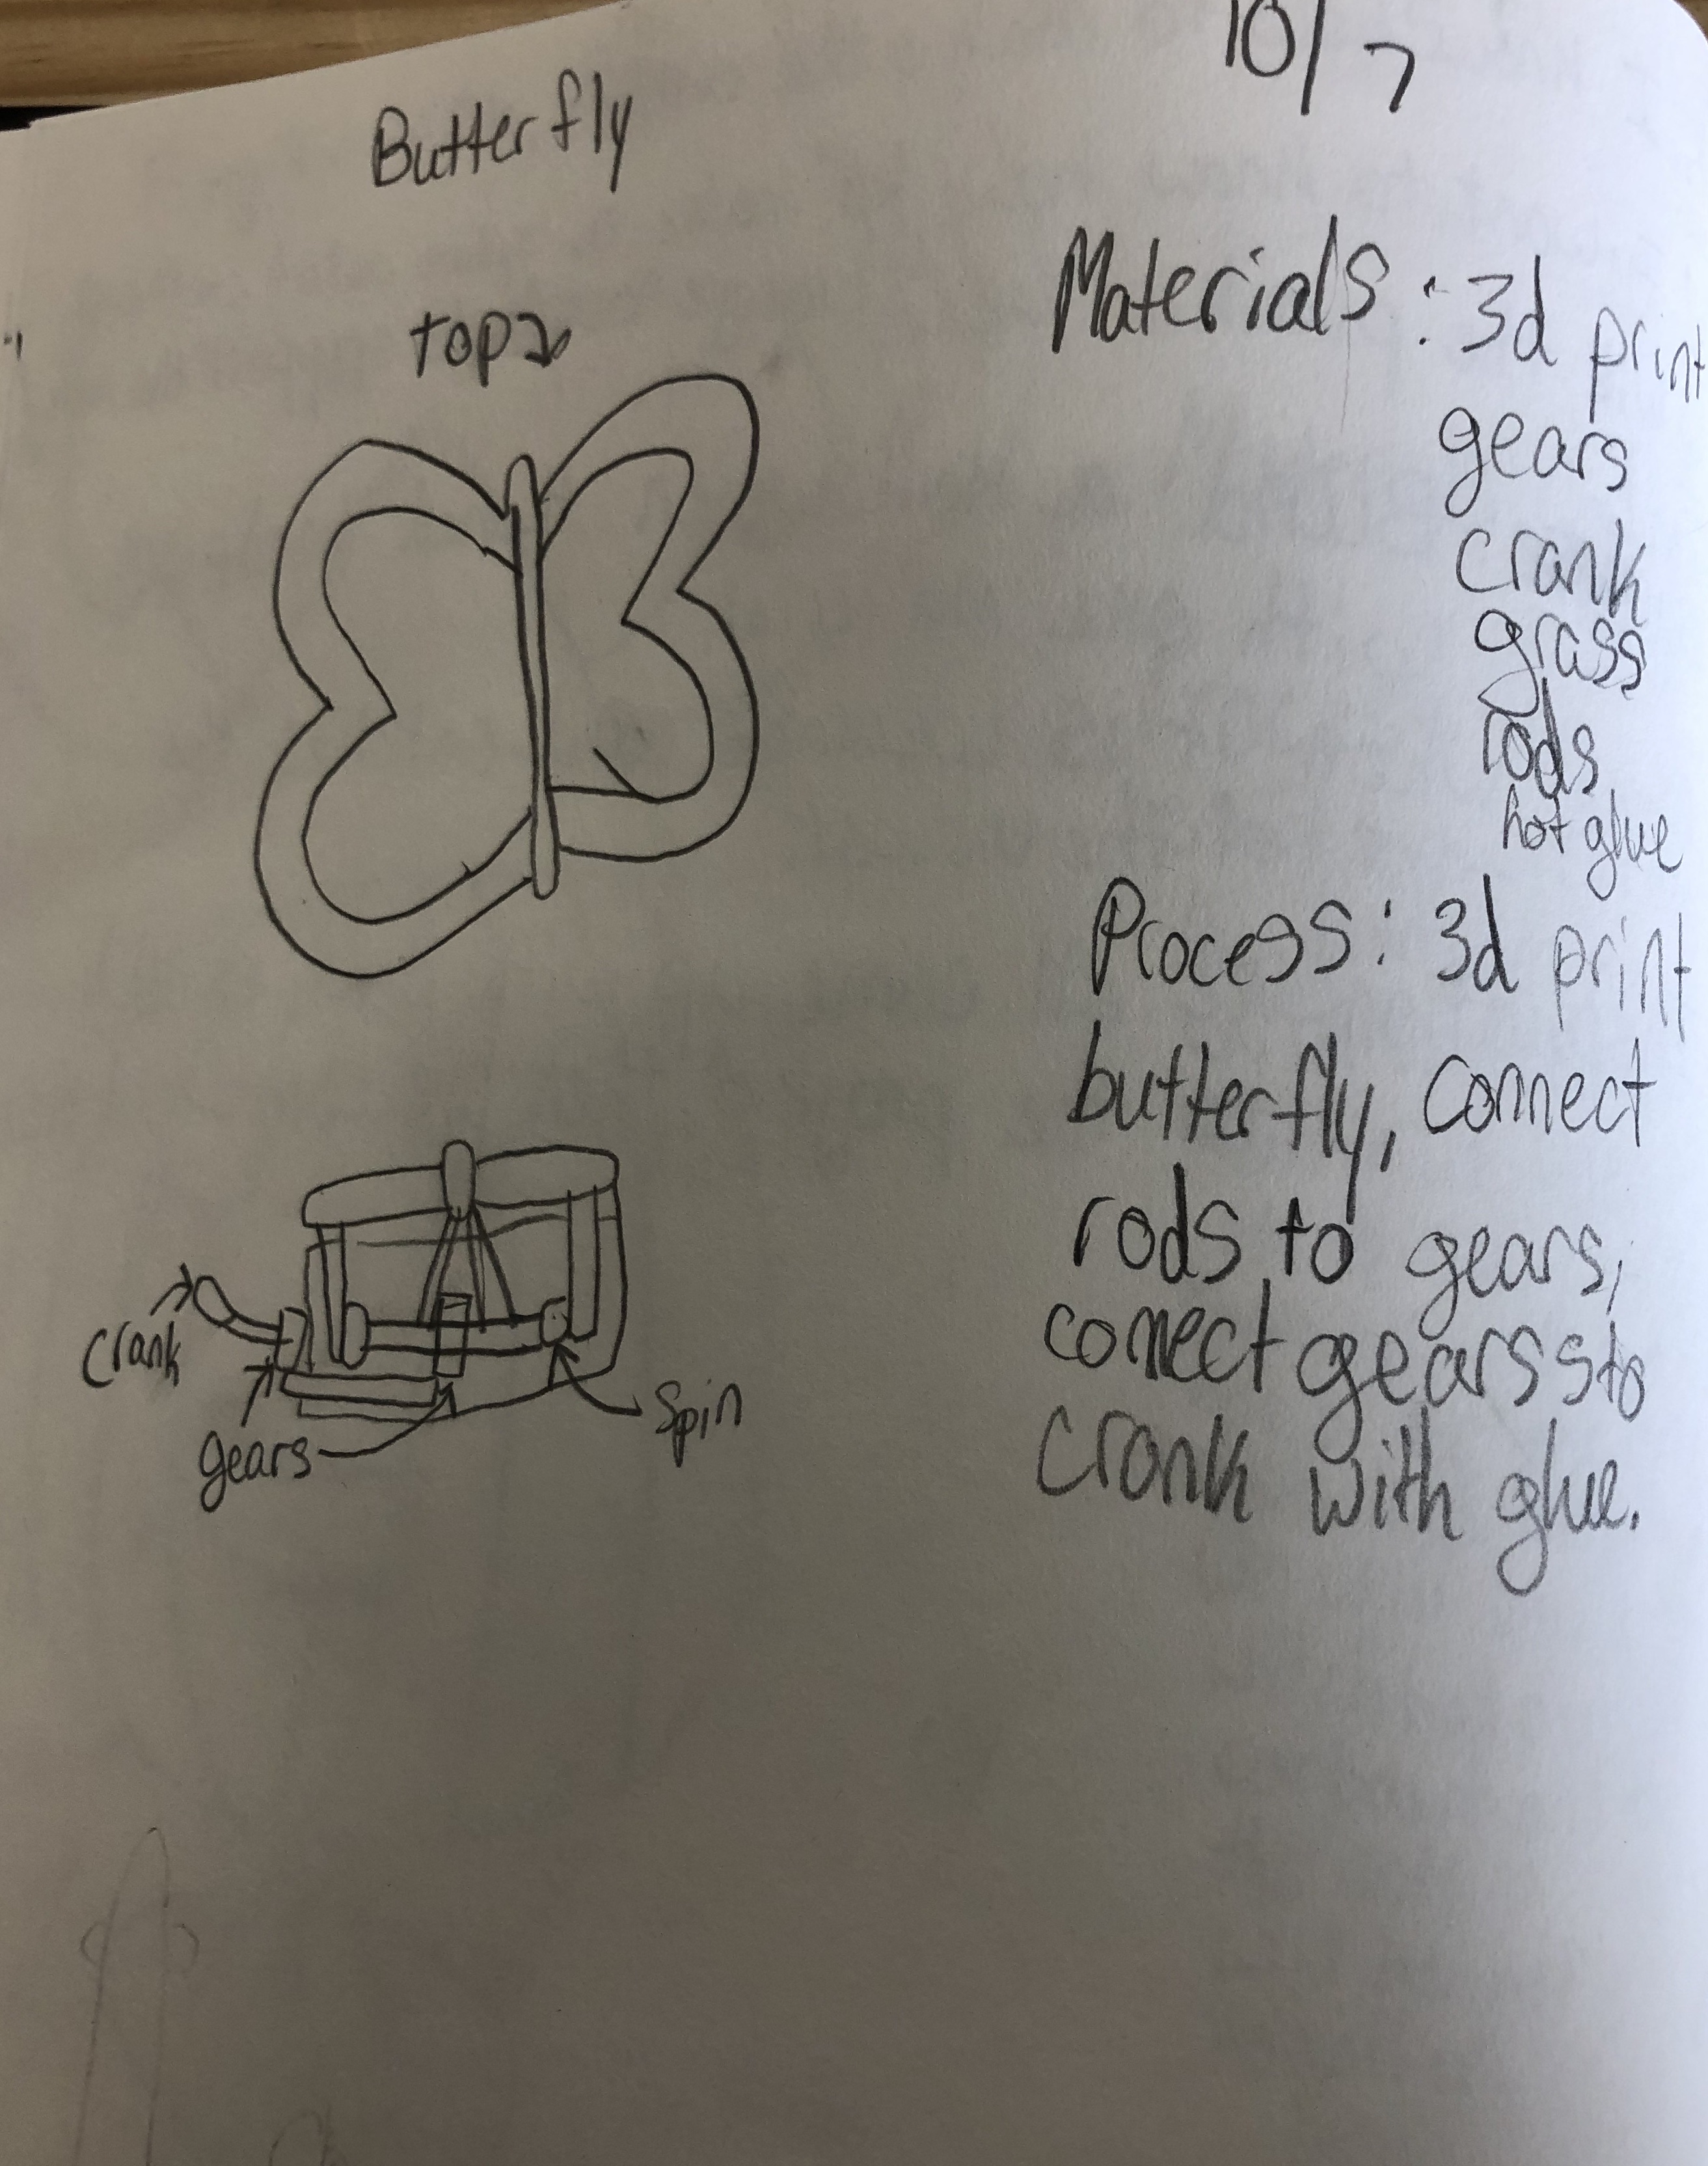 10/7
Butterfly
top
Materials: 3d print
gears
crank
grass
rods
hot glue
Process: 3d print
butterfly, connect
rods to gears,
connect gears to
crank with glue.
crank
gears
spin